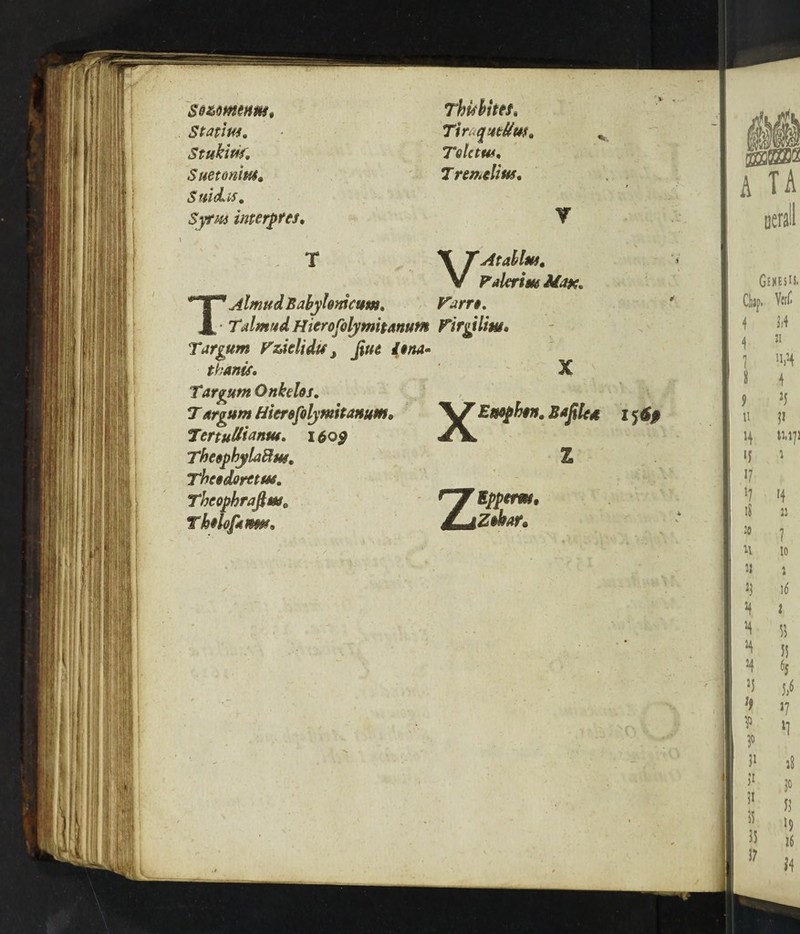 Sozomenus.
Statius.
Stukius.
Suetonius.
Suidas.
Syrus interpres.
T
TAlmud Babylonicum.
Talmud Hierosolymitanum
Targum Vzielidis, siue Iona-
thanis.
Targum Onkelos.
Targum Hierosolymitanum.
Tertullianus. 1609
Theophylactus.
Theodoretus.
Theophrastus.
Tholosanus.
Thisbites.
Tiraquellus.
Toletus.
Tremelius.
V
VAtablus.
Valerius Max.
Varro.
Virgilius.
X
XEnophon. Basileæ 1569
Z
ZEpperus.
Zohar.
A TA
uerall
GENESIS.
Chap. Vers.
4 3,4
4 21
7 11,24
8 4
9 25
11 31
14
15 2
17
17 14
18 21
20 7
21 10
22 2
23 16
24 2
24 53
24 55
24 65
25 5,6
29 27
30 27
30
31 28
31 30
31 53
35 19
35 16
37 34